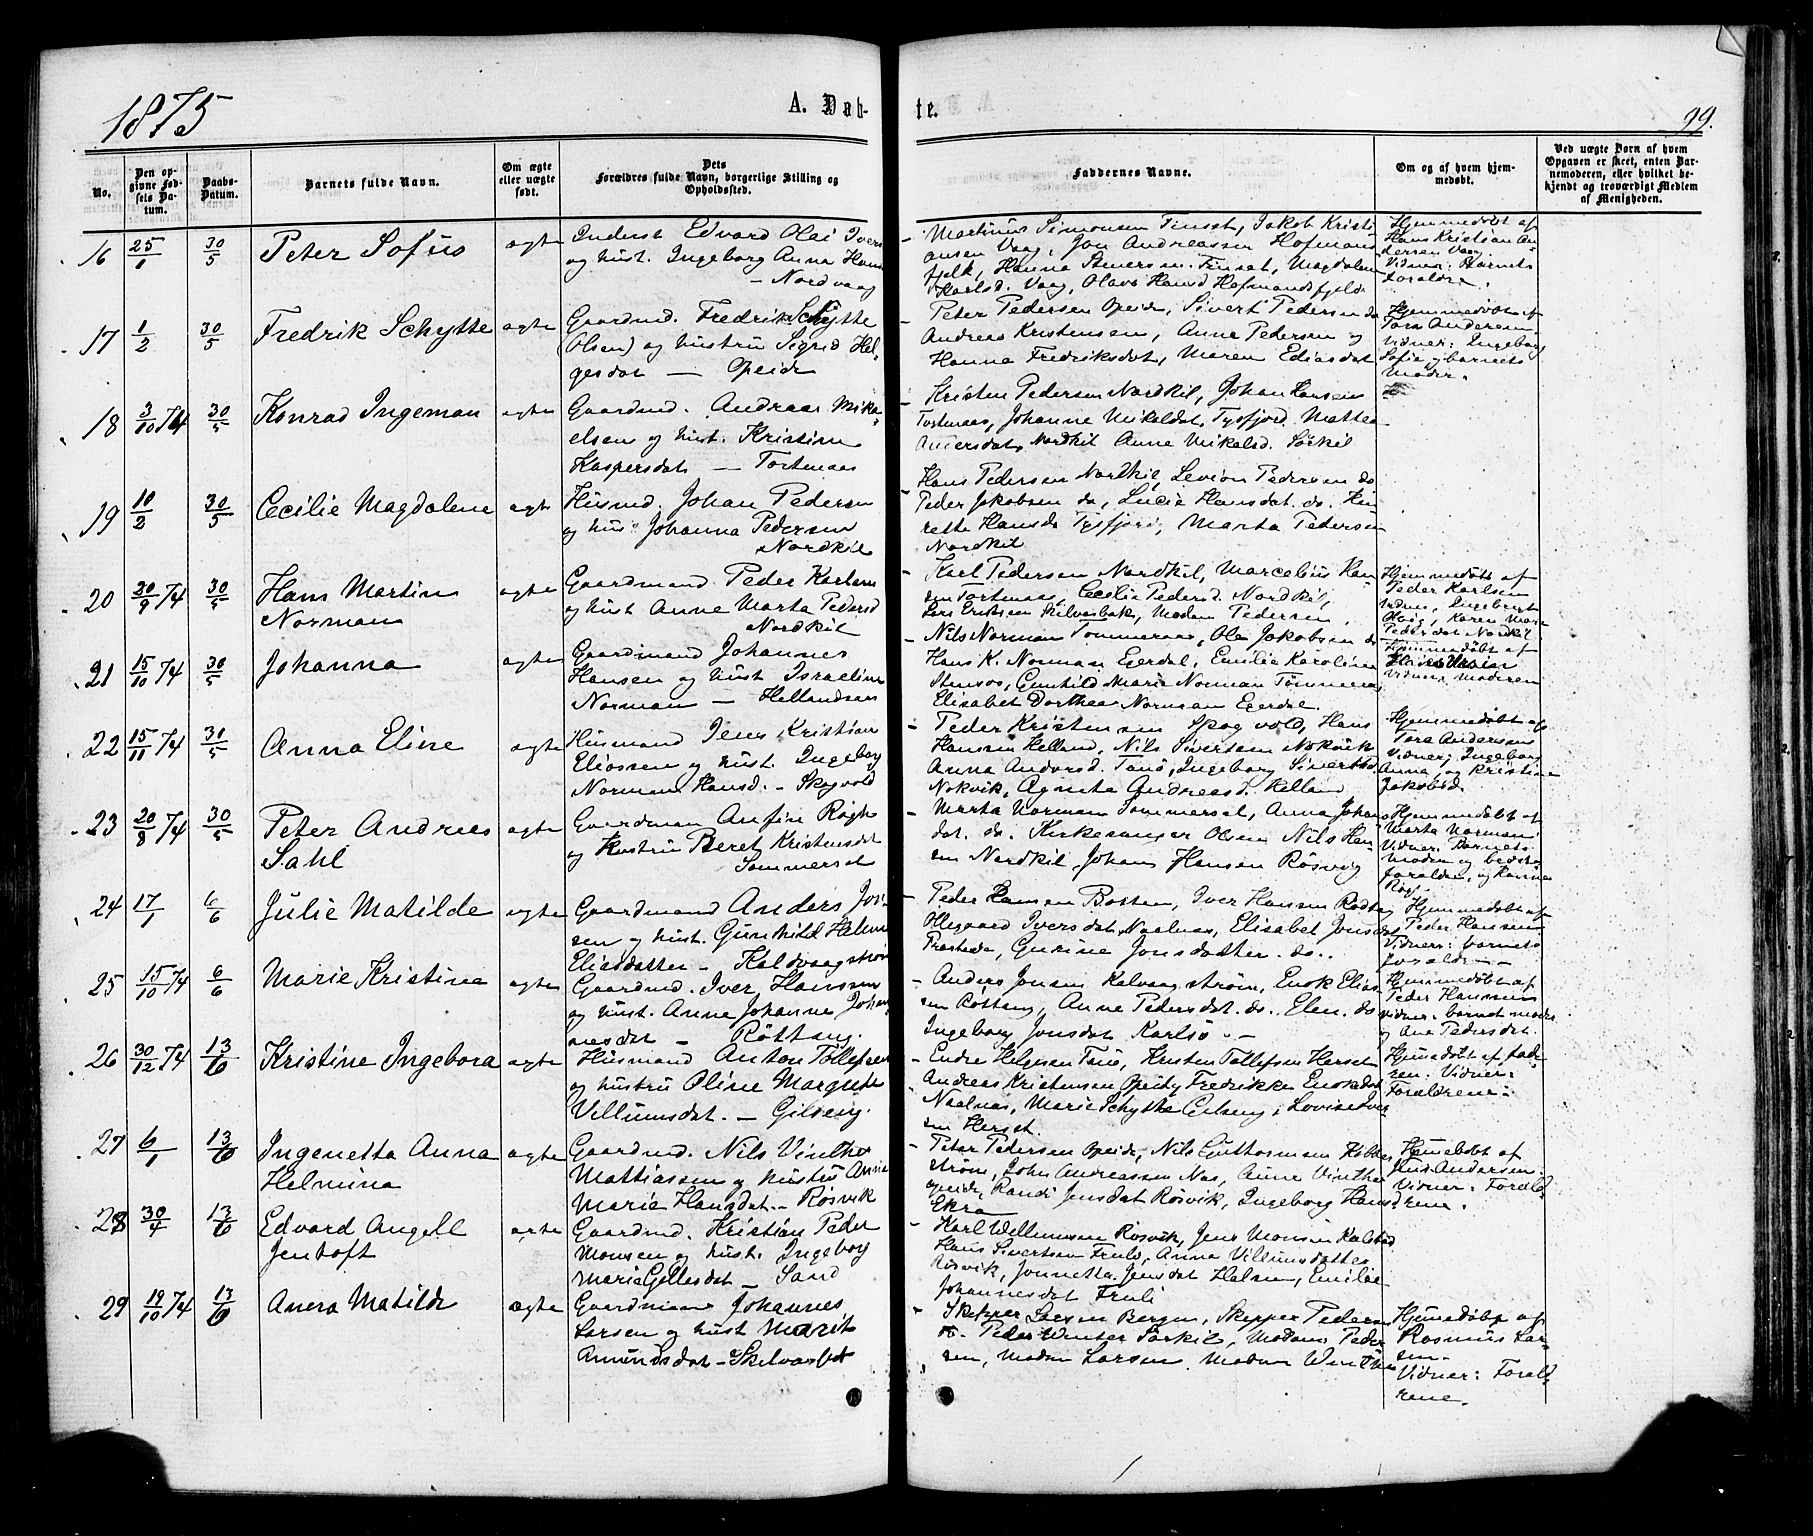 1875
A. Døb-
te.
99.
No.
Den opgivne Fødsels Datum.
Daabs-Datum.
Barnets fulde Navn.
Om ægte eller uægte født.
Dets Forældres fulde Navn, borgerlige Stilling og Opholdssted.
Faddernes Navne.
Om og af hvem hjemmedøbt.
Ved uægte Børn af hvem Opgaven er skeet, enten Barnemoderen, eller hvilket bekjendt og troværdigt Medlem af Menigheden.
16 25/1 30/5 Peter Sofus ægte
Inderst Edvard Olai Ivers
og hust. Ingeborg Anna Hans
- Nordvaag
Martinus Simonsen Finset, Jakob Kristi
ansen Vaag, Jon Andreassen Hofmans
fjelk, Hanna Stenersen Finset, Magdalene
Karlsd. Vaag, Olava Hansd Hofmandsfjeld
Hjemmedøbt af
Hans Kristian An
dersen Vaag
Vidner: Barnets
Forældre.
17 1/2 30/5 Fredrik Schytte ægte
Gaardmd. Fredrik Schytte
(Olsen) og hustru Sigrid Hel-
gesdat — Opeide
Peter Pedersen Opeide, Sivert Pedersen do
Andreas Kristensen, Anne Pedersen og
Hanna Fredriksdat, Maren Eliasdat
Hjemmedøbt af
Tora Andersen
Vidner: Ingeborg
Sofie og barnets
Moder.
18 3/10 74 30/5 Konrad Ingeman ægte
Gaardmd. Andreas Mika-
elsen og hust. Kristine
Kaspersdat — Tortenaas
Kristen Pedersen Nordkil, Johan Hansen
Tortenaas, Johanne Mikalsdat, Tysfjord. Mattea
Andersdat, Nordkil Anne Mikalsd. Sørkil
19 10/2 30/5 Cecilie Magdalene ægte
Husmd. Johan Pedersen
og hus. Johanna Pedersen
Nordkil
Hans Pedersen Nordkil, Levion Pedersen do
Peder Jakobsen do, Lucie Hansdat. do.
rette Hansd. Tysfjord, Marta Pedersen
Nordkil
20 30/9 74 30/5 Hans Martin ægte
Norman
Gaardmand Peder Karlsen
og hust Anne Marta Pedersd
Nordkil
Karl Pedersen Nordkil, Marcelius Han
sen Tortenaas, Cecilie Pedersd. Nordkil,
Lars Eriksen Skilvasbak, Madam Pedersen
Hjemmedøbt af
Peder Karlsen
Vidner, Ingebregt
Karen Mar
Pedersdat Nordkil
21 15/10 74 30/5 Johanna ægte
Gaardmand Johannes
Hansen og hust Israeline
Norman — Hellandsen
Nils Norman Tømmeraas, Ole Jakobsen do
Hans K. Norman Egerdal, Emilie Karoline
Stensos, Gunhild Marie Norman Tømmeraas
Elisabet Dorthea Norman Egerdal.
Hjemmedøbt af
Vidner, moderen
22 15/11 74 30/5 Anna Eline ægte
Husmand Jens Kristian
Eliassen og hust. Ingeborg
Norman Hansd. - Skogvold
Peder Kristensen Skogvold, Hans
Hansen Helland, Nils Sivertsen Nokvik
Anna Andorsd. Tanø, Ingeborg Sivertsd.
Nokvik, Agneta Andreasd. Helland
Hjemmedøbt af
Tora Andersen
Vidner, Ingeborg
Anna, og Kristine
Jakobsd.
23 20/8 74 30/5 Peter Andreas ægte
Sahl
Gaardman Anfin Røgh
og Hustru Beret Kristensdat
Sommerset
Marta Norman Sommerset, Anna Johans
dat. do. Kirkesanger Olsen Nils Han
sen Nordkil Johan Hansen Røsvig
Hjemmedøbt af
Marta Norman
Vidner: Barnets
moder og bedste
forældre, og Hanna
24 17/1 6/6 Julie Matilde ægte
Gaardmand Anders Jon-
sen og hust. Gunhild Helene
Eliasdatter - Kaldvaagstrøm
Peder Hansen Botten, Iver Hansen
Ellegaard Iversdat Naelnes, Elisabet Jonsdat
Præstede, Gurine Jonsdatter do..
Hjemmedøbt af
Peder Hansen
Vidner: barnets
forældre -
25 15/10 74 6/6 Marie Kristine ægte
Gaardmd. Iver Hanssen
og hust. Anne Johanne Johan
nesdat - Røttang.
Anders Jonsen Kalvaagstrøm, Enok Elias
sen Røttang, Anne Pedersdat. do. Elen do
Ingeborg Jonsdat Karlsø -
Hjemmedøbt af
Peder Hansen
Vidner: barnets moder
og Ane Pedersdat.
26 30/12 74 13/6 Kristine Ingebora ægte
Husmand Anton Tollefsen
og hustru Oline Margrete
Villumsdat. - Gilseng.
Endre Helgesen Tanø, Kristen Tollefsen Herset
Andreas Kristensen Opeid, Fredrikke Enoksdat
Naelnæs, Marie Schytte Gilseng, Lovise Iver
sen Herset.
Hjemedøbt af fade-
ren. Vidner:
Forældrene -
27 6/1 13/6 Ingenetta Anna ægte
Helmina
Gaardmd. Nils Vinther
Mattiassen og hustru Anne
Marie Hansdat. - Røsvik
Peter Pedersen Opeide, Nils Guttormsen
strøm, John Andreassen Nes, Anne Vinther
Opeide, Randi Jensdat Røsvik, Ingeborg Hansd.
Ekra
Hjemedøbt af
Jens Andersen:
Vidner: Foræld-
rene.
28 30/4 13/6 Edvard Angell ægte
Jentoft
Gaardmd. Kristian Peder
Monsen og hust. Ingeborg
Marie Gellesdat - Sand
Karl Wellumsen Røsvik, Jens Monsen Kalstad
Hans Sivertsen Fruli, Anna Villumsdatter
Røsvik, Jonnetta Jensdat Halsen, Emilie
Johannesdat Fruli
29 19/10 74 13/6 Anera Matilde ægte
Gaardmand Johannes
Larsen og hust Marit
Amundsdat - Skilvasbak
Skipper Larsen Bergen, Skipper Pedersen
do. Peder Winter Sørkil, Madam Peder
sen, Madam Larsen, Madam Winther
Hjemedøbt af
Rasmus Lar-
sen.
Vidner: Foræld-
rene.